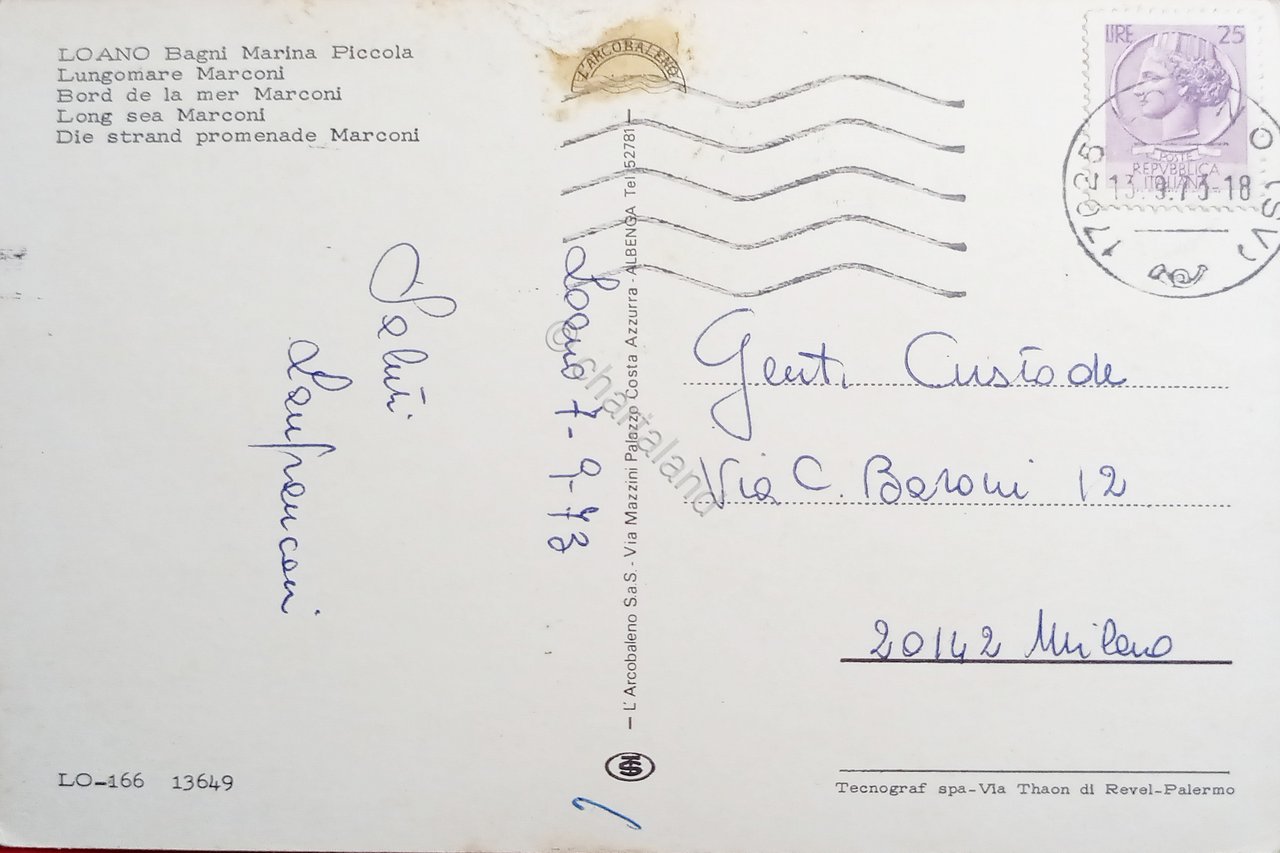 LOANO Bagni Marina Piccola
Lungomare Marconi
Bord de la mer Marconi
Long sea Marconi
Die strand promenade Marconi
Saluti
Lanfranconi
LO-166 13649
L'ARCOBALENO
Loano 7-9-73
— L'Arcobaleno S.a.S. - Via Mazzini Palazzo Costa Azzurra - ALBENGA Tel. 52781 —
© chartaland
LIRE 25
POSTE
REPVBBLICA
ITALIANA
17025 O (SV)
13.9.73-18
Genti Custode
Via C. Baroni 12
20142 Milano
Tecnograf spa-Via Thaon di Revel-Palermo